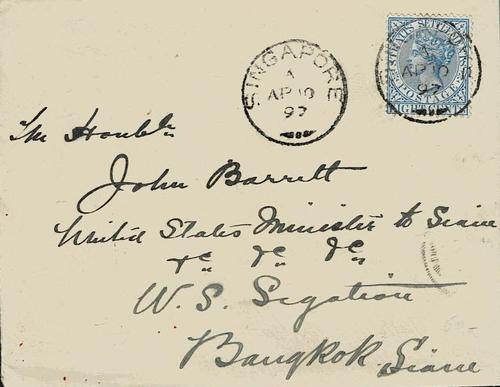 SINGAPORE
A
AP 10
97
STRAITS SETTLEMENTS
A
AP 10
97
POSTAGE
EIGHT CENTS
The Honble
John Barrett
United States Minister to Siam
&c &c &c
U.S. Legation
Bangkok Siam